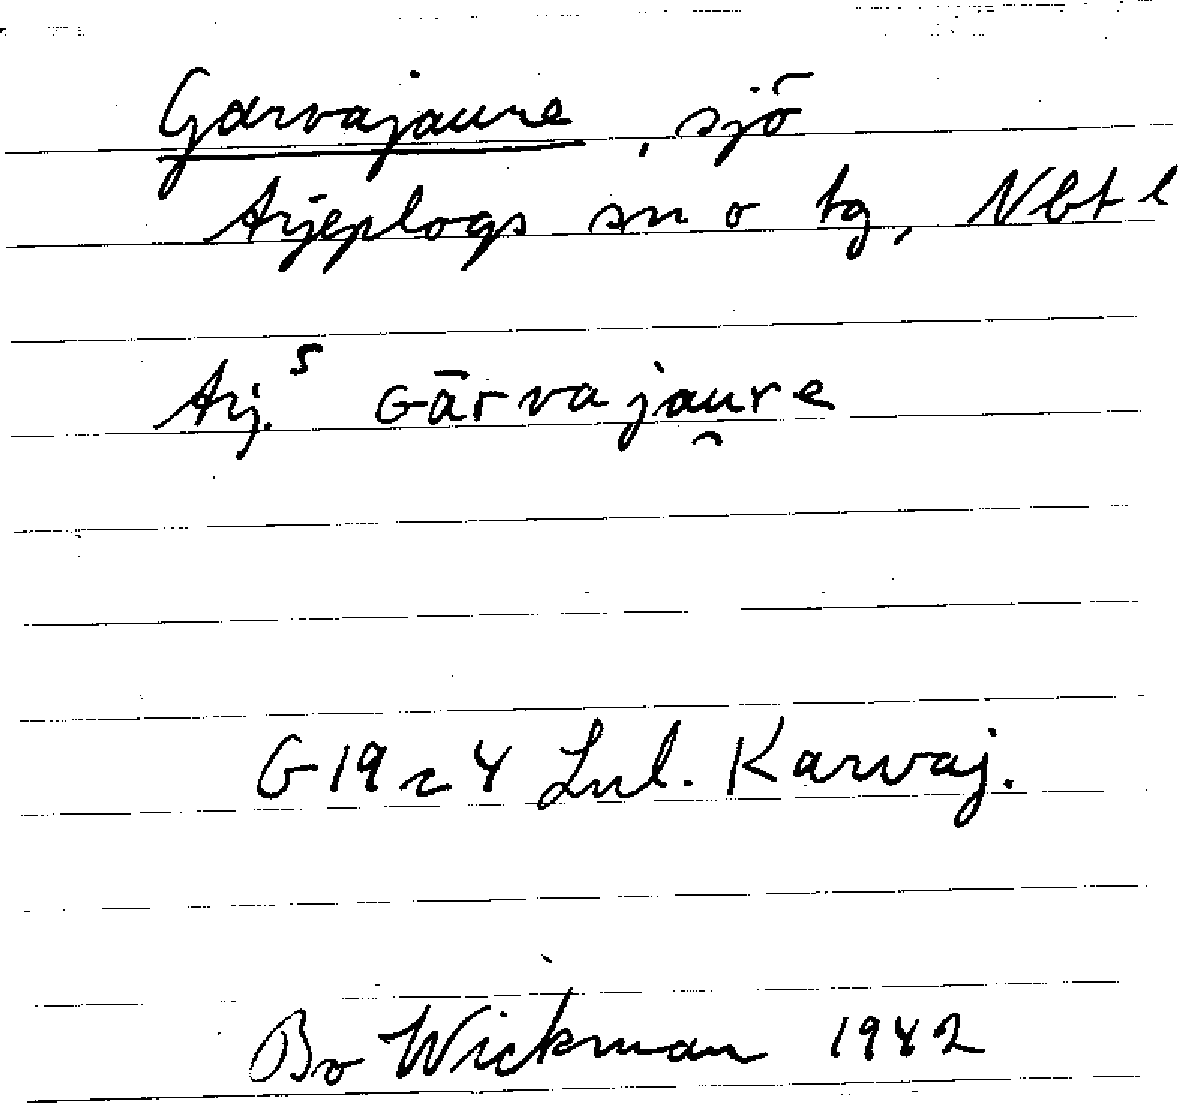 Garvajaure, sjö
Arjeplogs sn o tg, Nbt l
Arj.⁵ Gārvajau̯re
G19 c 4 Lul. Karvaj.
Bo Wickman 1942